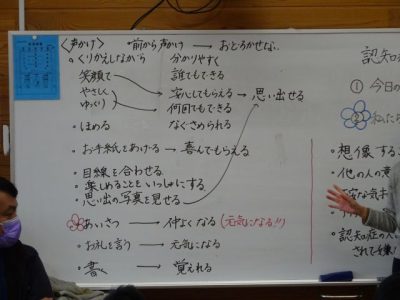 〈声かけ〉 ・前から声かけ → おどろかせない
・くりかえしながら 分かりやすく
笑顔で 誰でもできる
やさしく 安心してもらえる → 思い出せる
ゆっくり 何回でもできる
・ほめる なぐさめられる
・お手紙をあげる → 喜んでもらえる
・目線を合わせる
・楽しめることをいっしょにする
・思い出の写真を見せる
あいさつ → 仲よくなる (元気になる!!)
・お礼を言う → 元気になる
・書く → 覚えれる
認知
① 今日の
② 私たち
・想像するこ
・他の人の意
・認知症の人